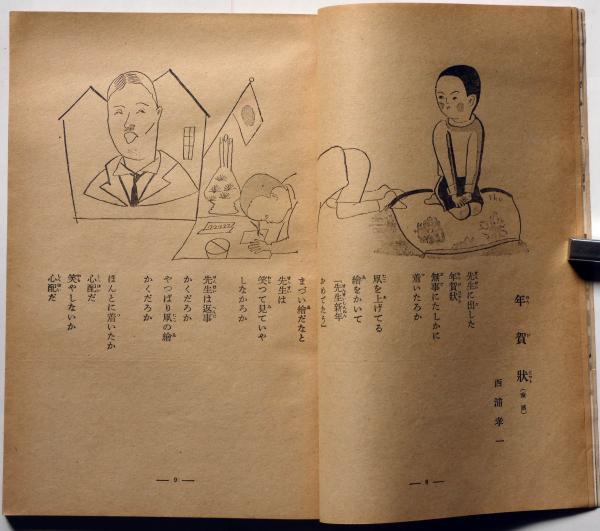 年賀狀
西浦孝一
先生に出した
年賀狀
無事にたしかに
着いたろか
凧を上げてる
繪をかいて
「先生新年
おめでたう」
まづい繪だなと
先生は
笑つて見てゐや
しなかろか
先生は返事
かくだろか
やつぱり凧の繪
かくだろか
ほんとに着いたか
心配だ
笑やしないか
心配だ
— 8 —
— 9 —